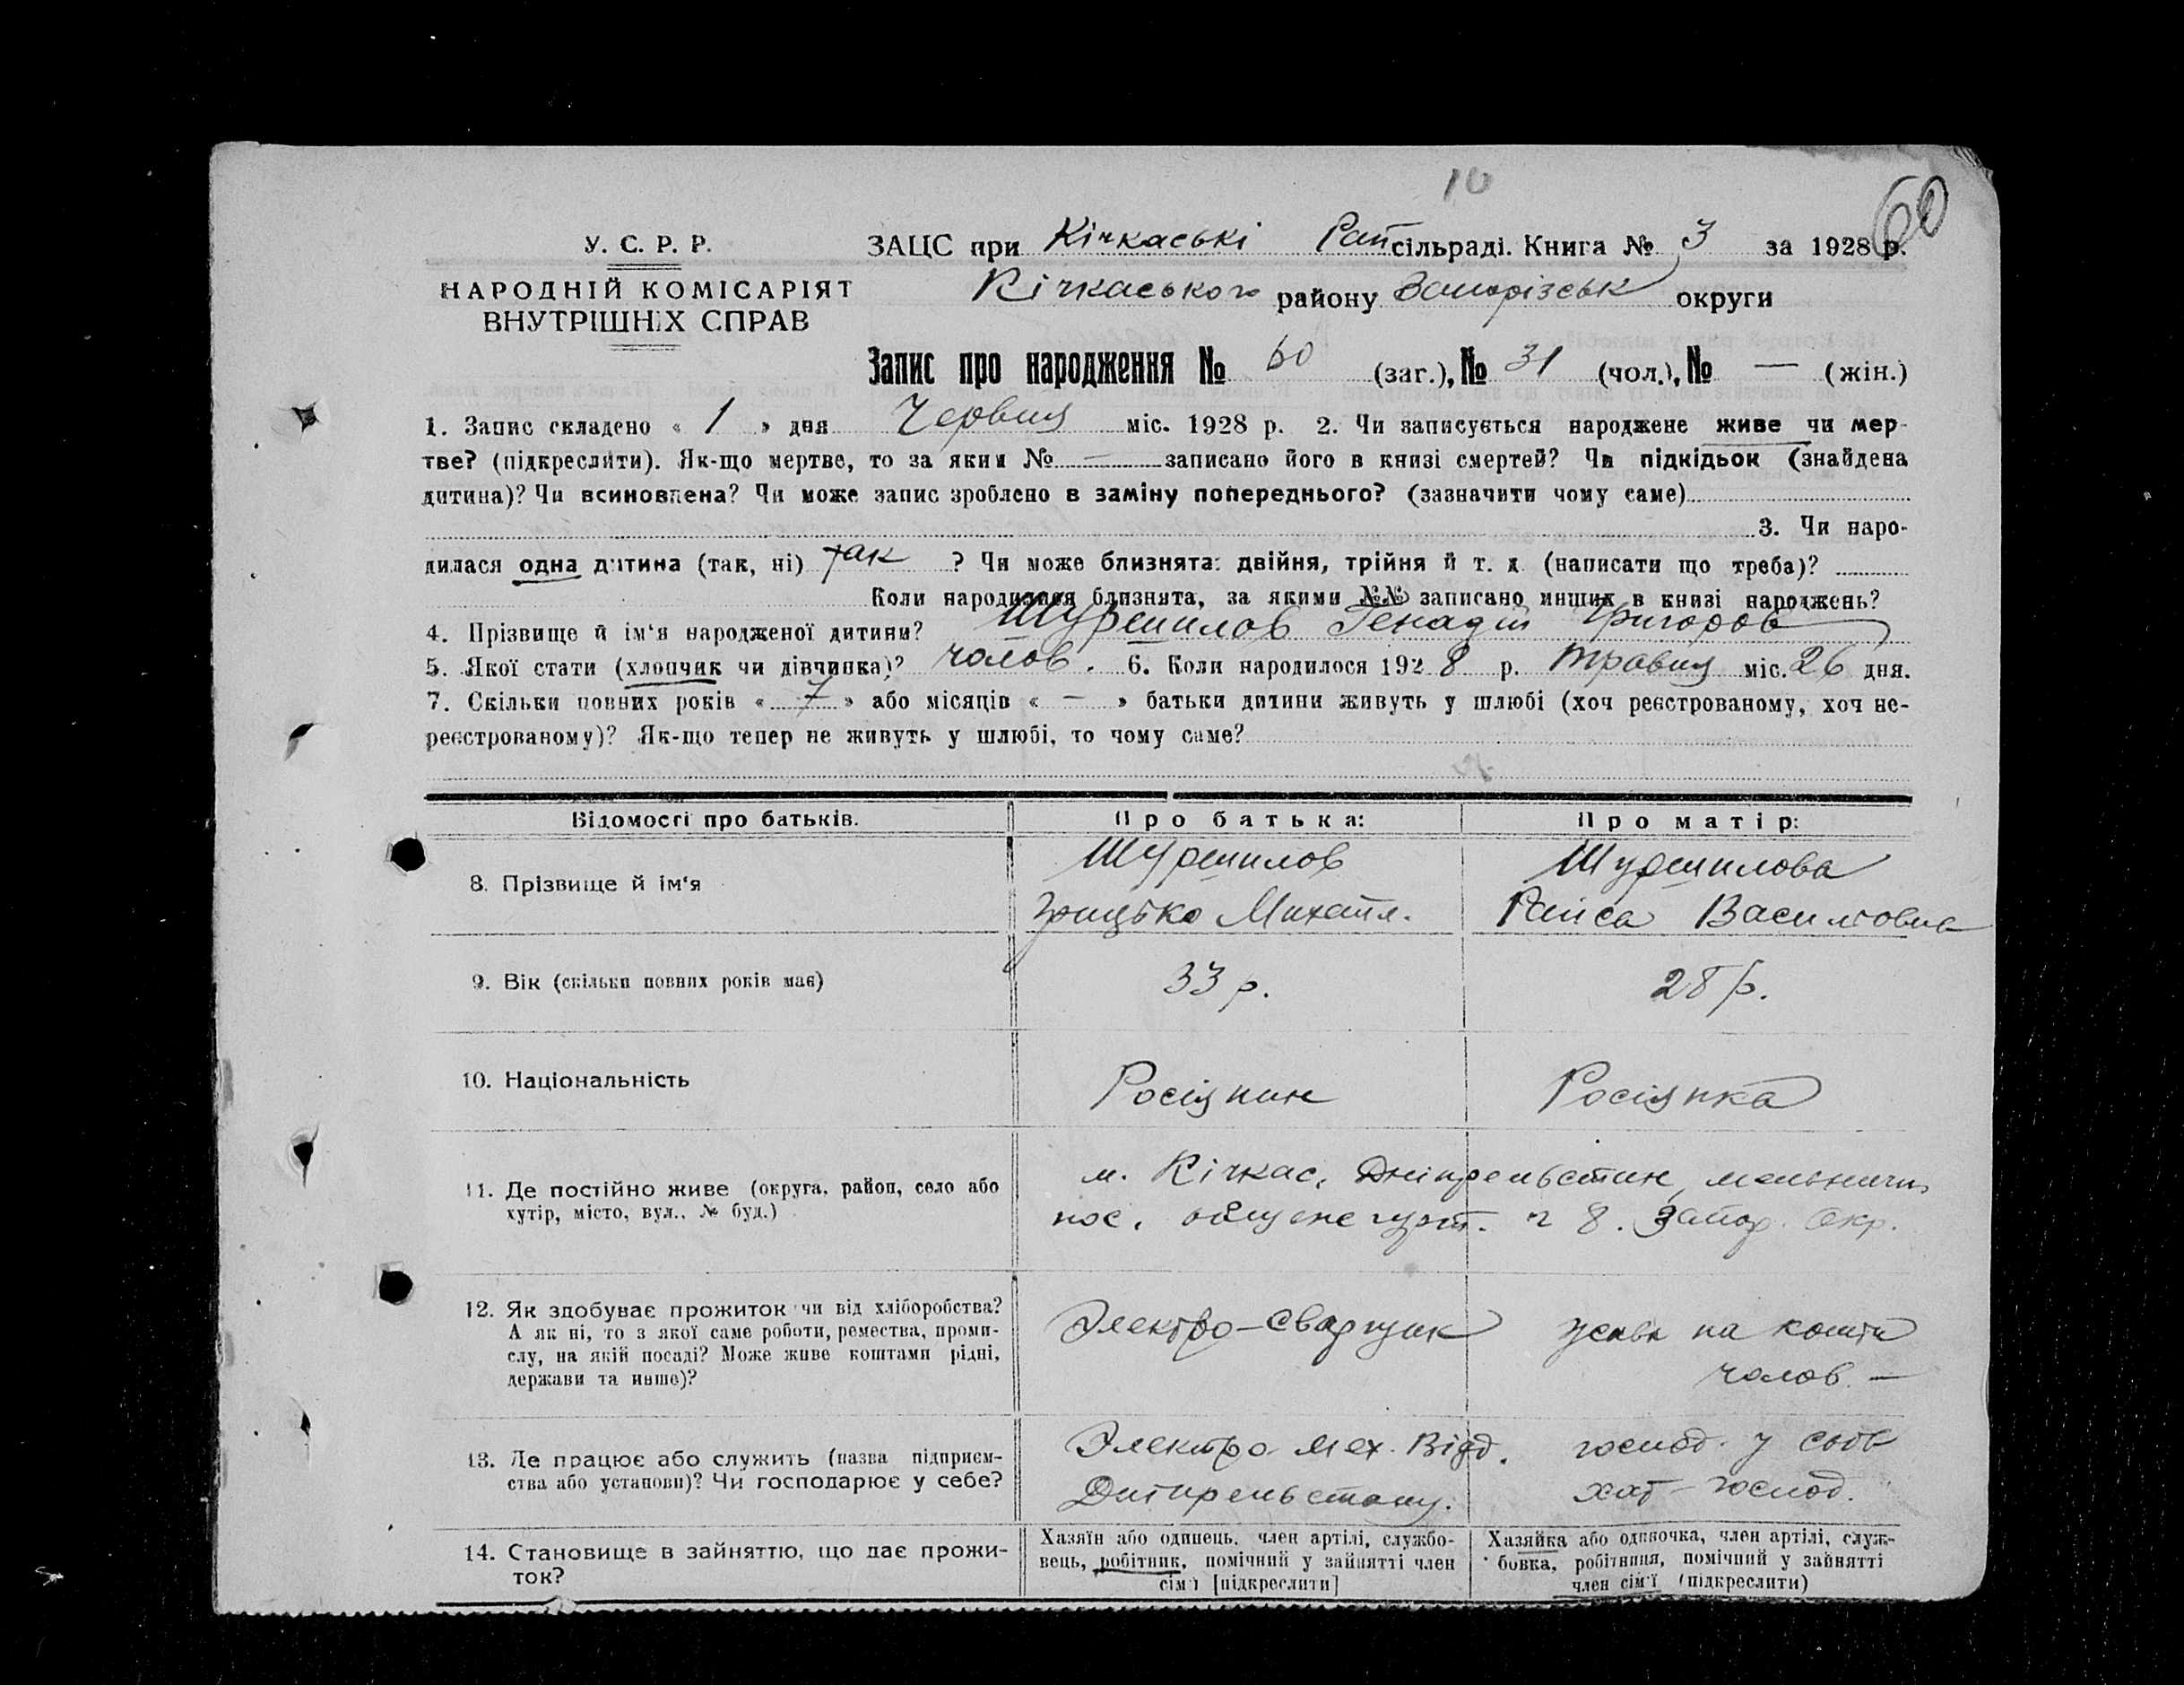 10
60
У. С. Р. Р.
ЗАЦС при Кічкаські Рай сільраді. Книга № 3 за 1928 р.
НАРОДНІЙ КОМІСАРІЯТ
ВНУТРІШНІХ СПРАВ
Кічкаського району Запорізськ округи
Запис про народження № 60 (заг.), № 31 (чол.), № — (жін.)
1. Запис складено « 1 » дня Червня міс. 1928 р. 2. Чи записується народжене живе чи мер-
тве? (підкреслити). Як-що мертве, то за яким № — записано його в книзі смертей? Чи підкідьок (знайдена
дитина)? Чи всиновлена? Чи може запис зроблено в заміну попереднього? (зазначити чому саме)
3. Чи наро-
дилася одна дитина (так, ні) так ? Чи може близнята: двійня, трійня й т. д. (написати що треба)?
Коли народилися близнята, за якими №№ записано инших в книзі народжень?
4. Прізвище й ім‘я народженої дитини? Шурпилов Генадій Григоров
5. Якої стати (хлопчик чи дівчинка)? чолов. 6. Коли народилося 1928 р. Травня міс. 26 дня.
7. Скільки повних років « 7 » або місяців « — » батьки дитини живуть у шлюбі (хоч реєстрованому, хоч не-
реєстрованому)? Як-що тепер не живуть у шлюбі, то чому саме?
Відомості про батьків.
Про батька:
Про матір:
8. Прізвище й ім‘я
Шурпилов
Грицько Михайл.
Шурпилова
Раиса Василювна
9. Вік (скільки повних років має)
33 р.
28 р.
10. Національність
Росіянин
Росіянка
11. Де постійно живе (округа, район, село або
хутір, місто, вул., № буд.)
м. Кічкас, Дніпрельстан,
пос. 8. Запор. Окр.
12. Як здобуває прожиток чи від хліборобства?
А як ні, то з якої саме роботи, ремества, проми-
слу, на якій посаді? Може живе коштами рідні,
держави та инше)?
Электро-сварщик
живе на кошти
чолов. —
13. Де працює або служить (назва підприєм-
ства або установи)? Чи господарює у себе?
Электро Мех. Відд.
Дніпрельстану.
господ. у своїй
хат- господ.
14. Становище в зайняттю, що дає прожи-
ток?
Хазяїн або одинець, член артілі, службо-
вець, робітник, помічний у зайнятті член
сім‘ї [підкреслити]
Хазяйка або одиночка, член артілі, служ-
бовка, робітниця, помічний у зайнятті
член сім‘ї (підкреслити)